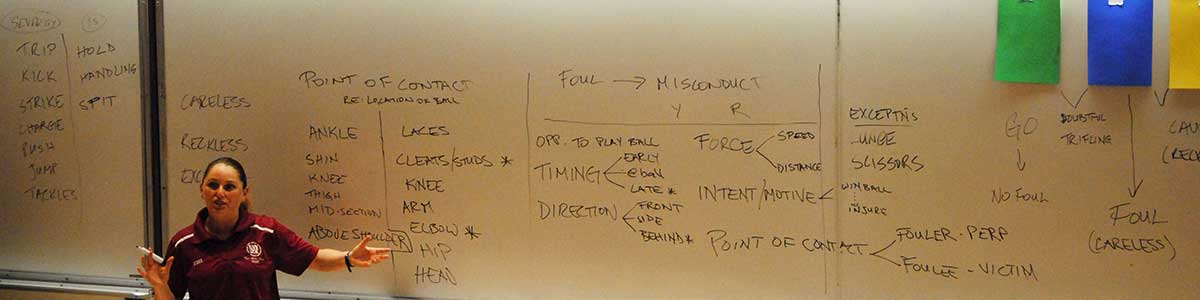 TRIP
KICK
STRIKE
CHARGE
PUSH
JUMP
TACKLES
HOLD
HANDLING
SPIT
CARELESS
RECKLESS
POINT OF CONTACT
RE: LOCATION OF BALL
ANKLE
SHIN
KNEE
THIGH
MID-SECTION
ABOVE SHOULDER
LACES
CLEATS/STUDS *
KNEE
ARM
ELBOW *
HIP
HEAD
FOUL → MISCONDUCT
Y R
OPP. TO PLAY BALL
TIMING
EARLY
LATE *
DIRECTION
FRONT
SIDE
BEHIND *
FORCE
SPEED
DISTANCE
INTENT/MOTIVE
WIN BALL
INSURE
POINT OF CONTACT
FOULER - PERP
FOULEE - VICTIM
EXCEPT'NS
LUNGE
SCISSORS
GO
NO FOUL
DOUBTFUL
TRIFLING
FOUL
(CARELESS)